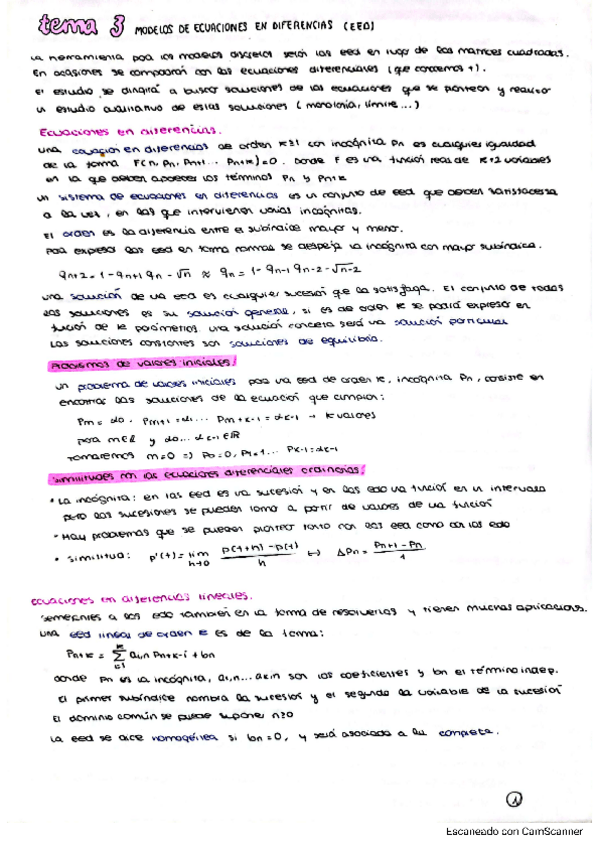 tema 3 MODELOS DE ECUACIONES EN DIFERENCIAS (EED)
La herramienta para los modelos discretos serán las eed en lugar de las matrices cuadradas.
En ocasiones se compararán con las ecuaciones diferenciales (que conocemos +).
El estudio se dirigirá a buscar soluciones de las ecuaciones que se planteen y realizar
un estudio cualitativo de estas soluciones (monotonía, límite...)
Ecuaciones en diferencias.
una ecuación en diferencias de orden k≥1 con incógnita Pn es cualquier igualdad
de la forma F(n, Pn, Pn+1... Pn+k)=0. Donde F es una función real de k+2 variables
en la que deben aparecer los términos Pn y Pn+k
un sistema de ecuaciones en diferencias es un conjunto de eed que deben satisfacerse
a la vez, en las que intervienen varias incógnitas.
El orden es la diferencia entre el subíndice mayor y menor.
Para expresar las eed en forma normal se despeja la incógnita con mayor subíndice.
qn+2 = 1 - qn+1 qn - √n ≈ qn = 1 - qn-1 qn-2 - √n-2
una solución de una eed es cualquier sucesión que la satisfaga. El conjunto de todas
las soluciones es su solución general, si es de orden k se podrá expresar en
función de k parámetros. una solución concreta será una solución particular
Las soluciones constantes son soluciones de equilibrio.
Problemas de valores iniciales:
un problema de valores iniciales para una eed de orden k, incógnita Pn, consiste en
encontrar las soluciones de la ecuación que cumplan:
Pm = α0. Pm+1 = α1... Pm+k-1 = αk-1 → k valores
para m∈ℤ y α0... αk-1 ∈ℝ
Tomaremos m=0 => P0=0, P1=1... Pk-1=αk-1
Similitudes con las ecuaciones diferenciales ordinarias:
• La incógnita: en las eed es una sucesión y en las edo una función en un intervalo
pero las sucesiones se pueden tomar a partir de valores de una función
• Hay problemas que se pueden plantear tanto con las eed como con las edo
• similitud: p'(t) = lim h→0 p(t+h) - p(t) / h ↔ ΔPn = Pn+1 - Pn / 1
Ecuaciones en diferencias lineales.
Semejantes a las edo también en la forma de resolverlas y tienen muchas aplicaciones.
una eed lineal de orden k es de la forma:
Pn+k = Σ i=1 k ai,n Pn+k-i + bn
donde Pn es la incógnita, a1,n... ak,n son los coeficientes y bn el término indep.
El primer subíndice nombra la sucesión y el segundo la variable de la sucesión
El dominio común se puede suponer n≥0
La eed se dice homogénea si bn=0, y será asociada a la completa.
1
Escaneado con CamScanner